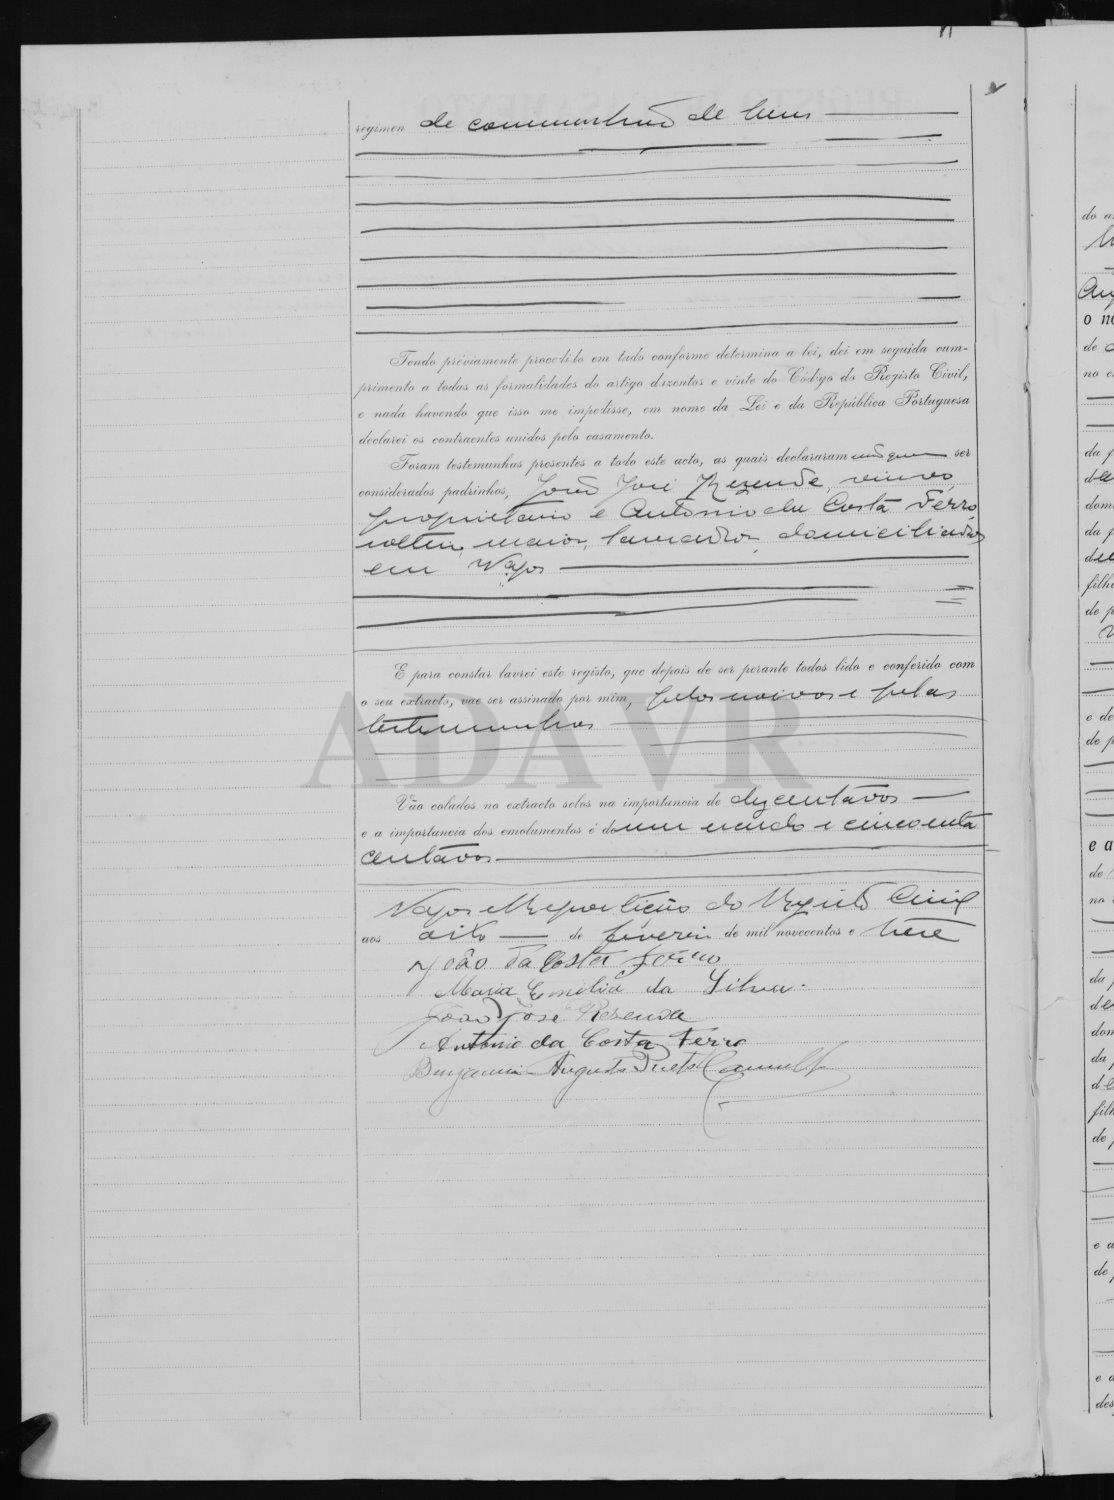 regimen de communhão de bens
Tendo préviamente procedido em tudo conforme determina a lei, dei em seguida cum-
primento a todas as formalidades do artigo duzentos e vinte do Código do Registo Civil,
e nada havendo que isso me impedisse, em nome da Lei e da República Portuguesa
declarei os contraentes unidos pelo casamento.
Foram testemunhas presentes a todo este acto, as quais declararam não quer ser
considerados padrinhos, João José Rezende, viuvo,
proprietario e Antonio da Costa Ferro,
solteiro, maior, lavrador, domiciliados
em Vagos
E para constar lavrei este registo, que depois de ser perante todos lido e conferido com
o seu extracto, vae ser assinado por mim, pelos noivos e pelas
testemunhas
ADAVR
Vão colados no extracto selos na importancia de dez centavos
e a importancia dos emolumentos é de um escudo e cincoenta
centavos
Vagos e Repartição do Registo Civil
aos oito de fevereiro de mil novecentos e treze
João da Costa Ferro
Maria Emelia da Silva.
João José Rezende
Antonio da Costa Ferro
Benjamin Augusto
do a
o no
de
no e
da f
dom
da p
filh
de p
e de
de p
e a
de
no
da f
don
da
filh
de
e a
de
e a
des